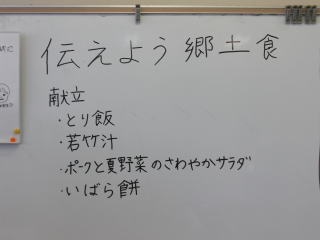 伝えよう郷土食
献立
・とり飯
・若竹汁
・ポークと夏野菜のさわやかサラダ
・いばら餅